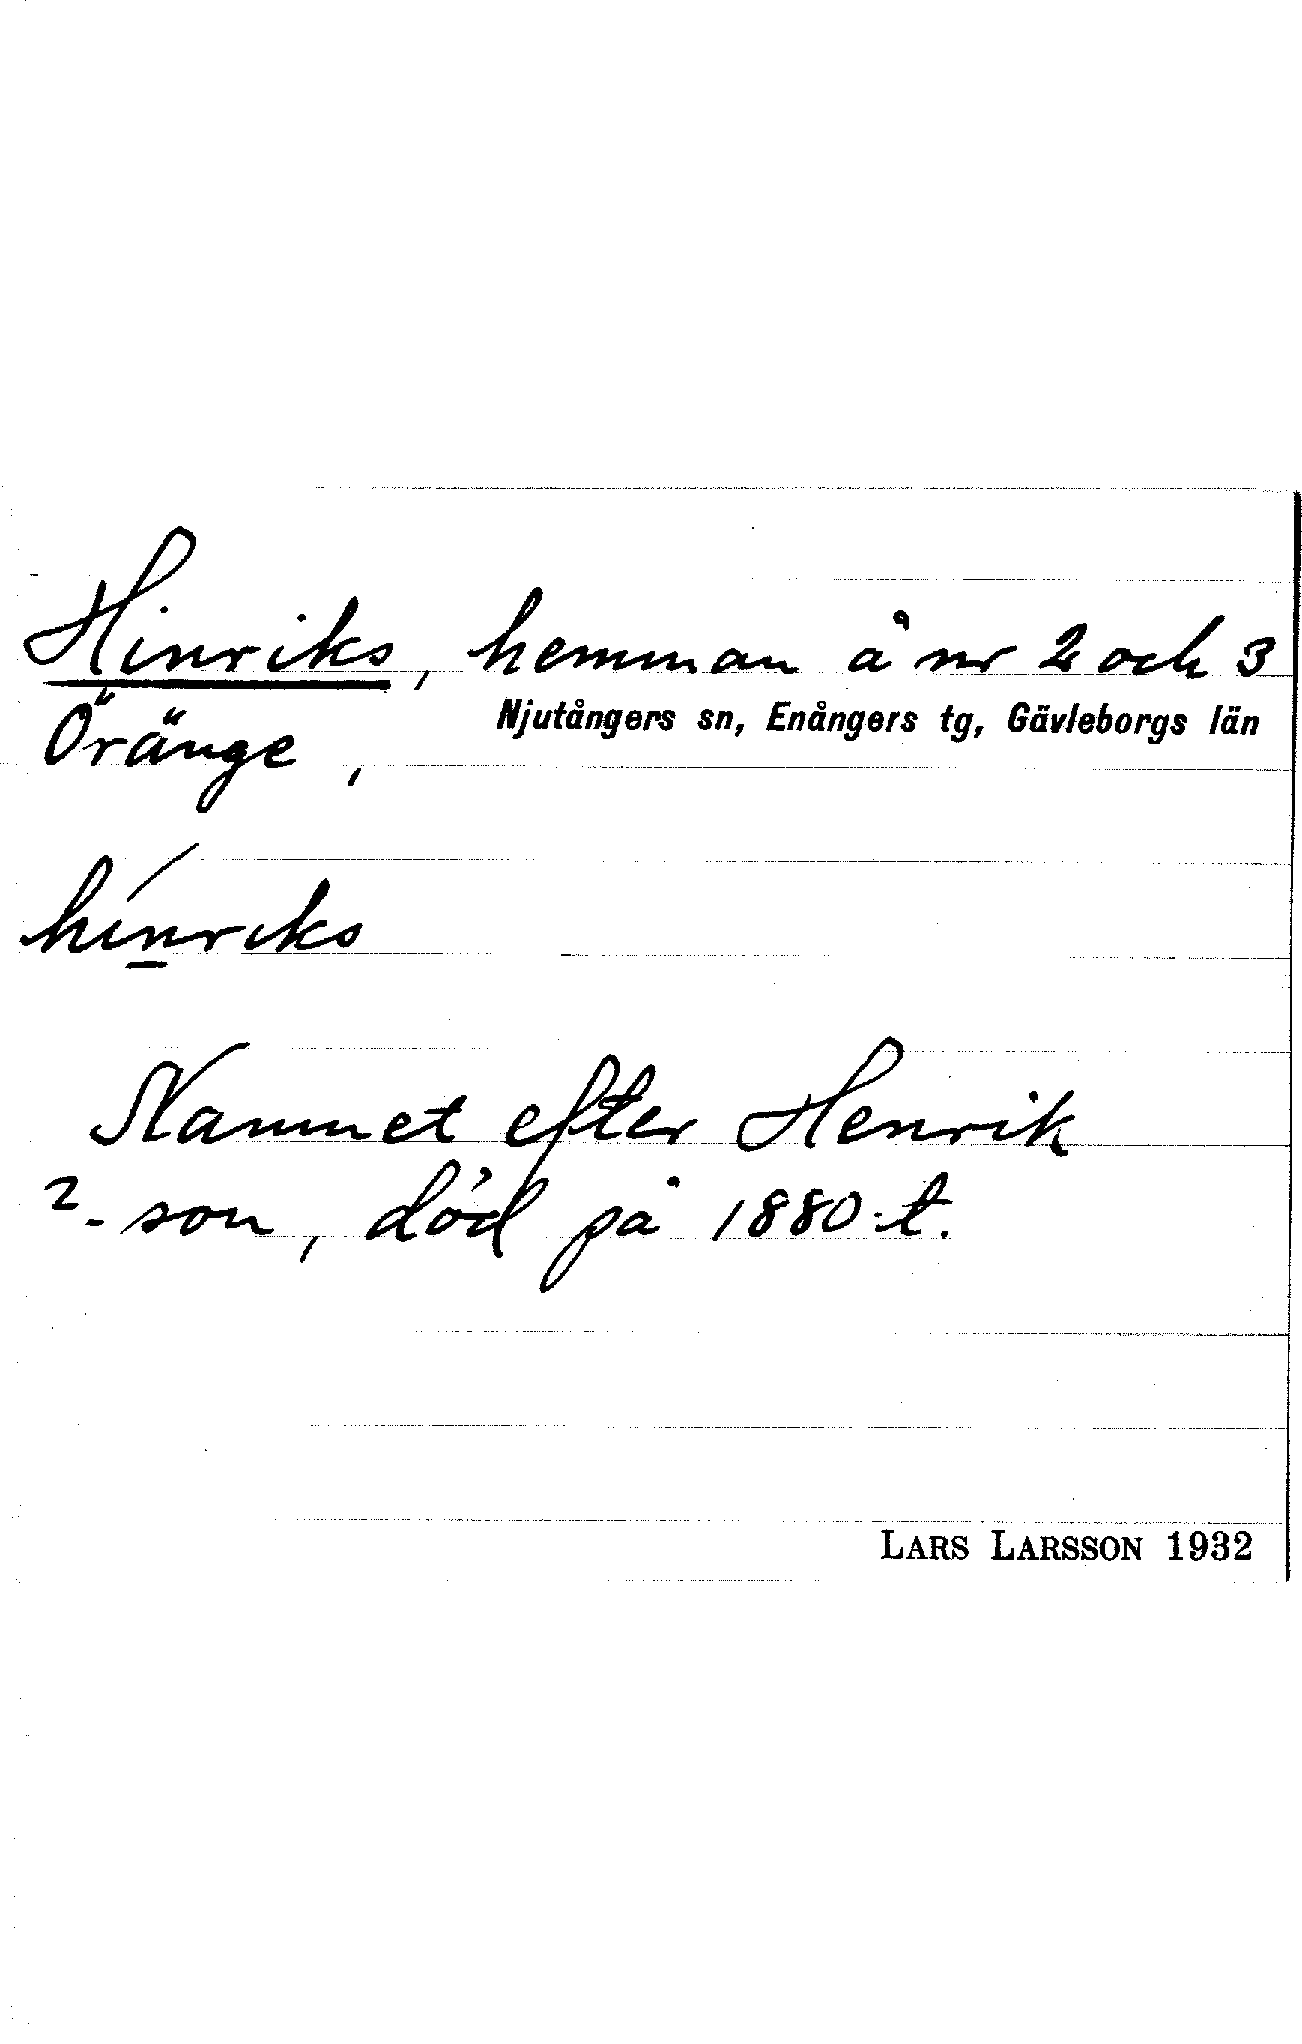 Hinriks, hemman å nr 2 och 3
Öränge,
Njutångers sn, Enångers tg, Gävleborgs län
hínriks
Namnet efter Henrik
?-son, död på 1880-t.
LARS LARSSON 1932